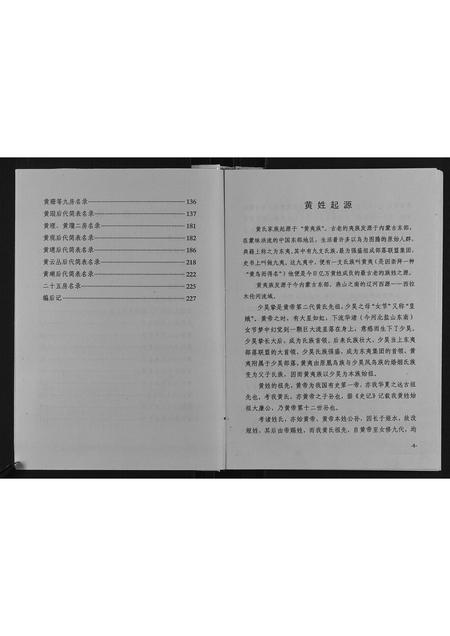 黄珊等九房名录 136
黄琨后代简表名录 137
黄瑆、黄瓊二房名录 181
黄琨后代简表名录 182
黄璁后代简表名录 186
黄云丛后代简表名录 218
黄瑚后代简表名录 222
二十五房名录 225
编后记 227
黄姓起源
黄氏家族起源于“黄夷族”。古老的夷族发源于内蒙古东部。
在蒙昧洪流的中国东部地区，生活着许多以鸟为图腾的原始人群。
典籍上称之为东夷，其中有九支氏族，最为强盛组成部落联盟集团，
史书上叫做九夷。这九夷中，便有一支氏族叫黄夷（是因崇拜一种
“黄鸟而得名”）他便是今日亿万黄姓成员的最古老的族姓之源。
黄夷族发源于今内蒙古东部，燕山之南的辽河西源——西拉
木伦河流域。
少昊挚是黄帝第二代黄氏先祖，少昊之母“女节”又称“皇
娥”。黄帝之时，有大星如虹，下流华渚（今河北盐山东南）
女节梦中幻觉到一颗巨大流星落在身上，意感而生下了少昊。
少昊挚长大后，成为氏族首领，后来氏族壮大，少昊当上东夷
部落联盟的大首领，少昊氏族强盛，成为东夷集团的首领，黄
夷附属于少昊部落，黄夷由原凰鸟族与少昊凤鸟族的婚姻氏族
变为父子氏族，因而黄夷族以少昊为本族始祖。
黄姓的祖先，黄帝为我国有史第一帝，亦我华夏之远古祖
先也，考我黄氏，亦黄帝之子孙也，据《史记》记载我黄姓始
祖大廉公，乃黄帝第十二世孙也。
考诸姓氏，亦始黄帝、黄帝本姓公孙，因长于姬水，故改
姬姓，其后由帝赐姓，而我黄氏祖先，自黄帝至女修九代，均
-4-